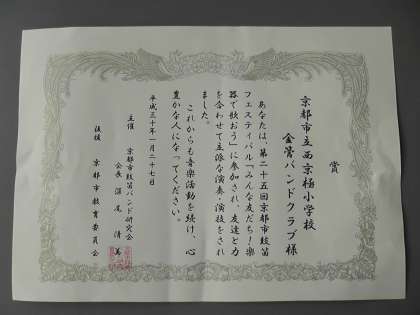 賞
京都市立西京極小学校
金管バンドクラブ様
あなたは、第二十五回京都市鼓笛
フェスティバル「みんな友だち!楽
器で歌おう」に参加され、友達と力
を合わせて立派な演奏・演技をされ
ました。
これからも音楽活動を続け、心
豊かな人になってください。
平成三十年一月二十七日
主催
京都市鼓笛バンド研究会
会長 深尾 清美
後援
京都市教育委員会